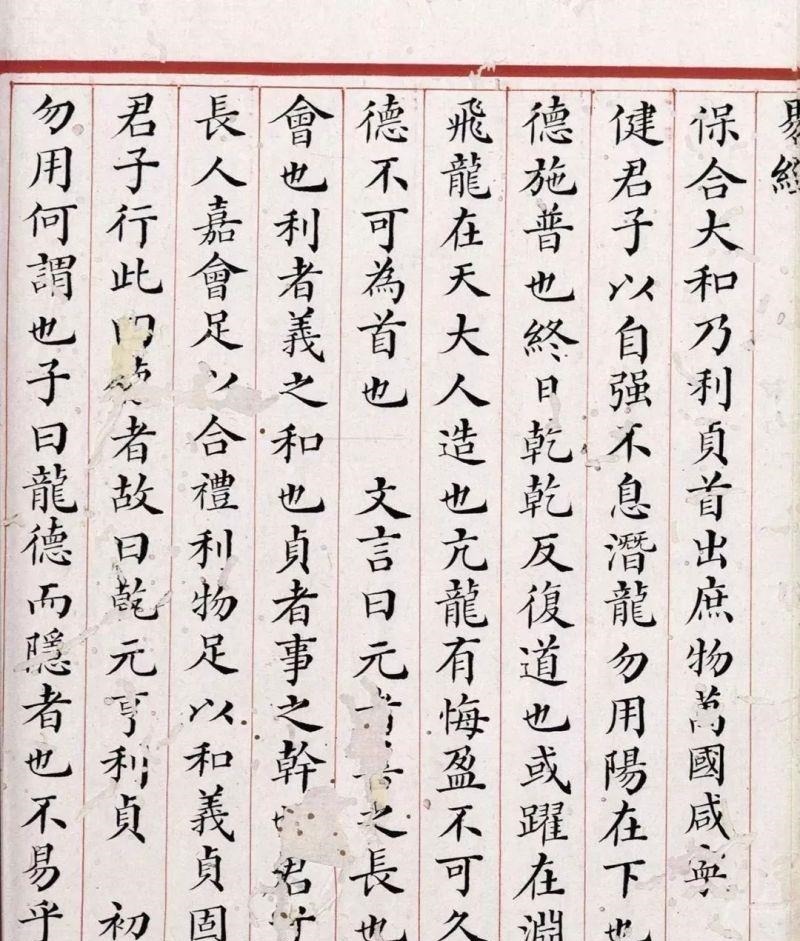 易經
保合大和乃利貞首出庶物萬國咸寧
健君子以自强不息潛龍勿用陽在下也
德施普也終日乾乾反復道也或躍在淵
飛龍在天大人造也亢龍有悔盈不可久
德不可為首也 文言曰元者善之長也
會也利者義之和也貞者事之幹也君子
長人嘉會足以合禮利物足以和義貞固
君子行此四德者故曰乾元亨利貞 初
勿用何謂也子曰龍德而隱者也不易乎